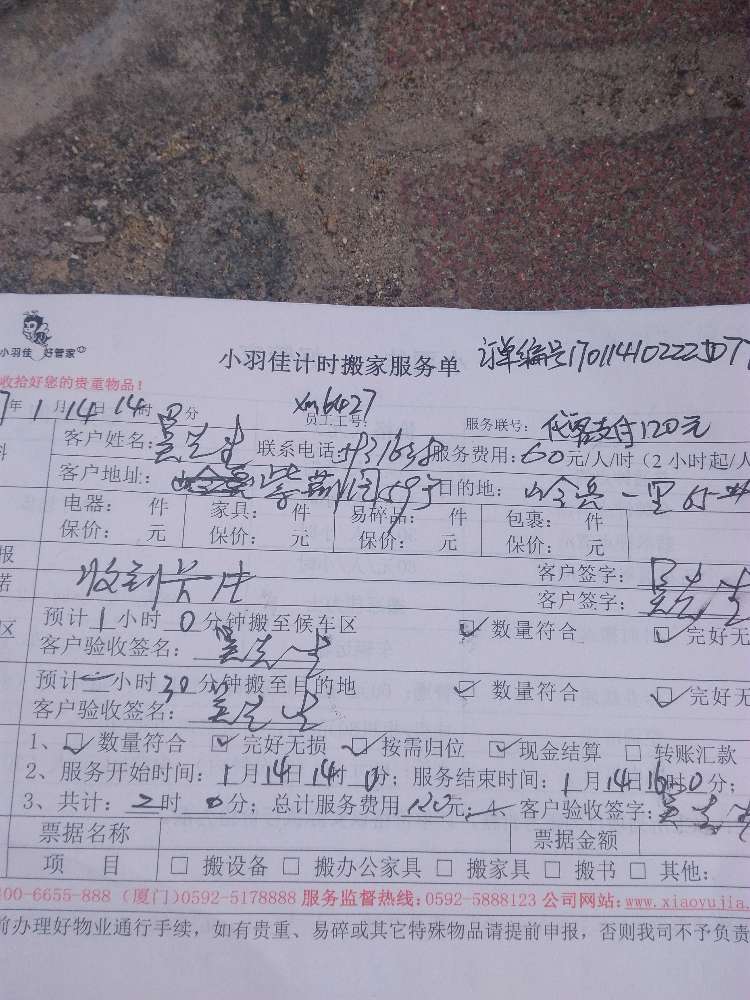 小羽佳 好管家
小羽佳计时搬家服务单 订单编号170114102222
收拾好您的贵重物品！
7年1月14日14时 分 员工工号: xm6427 服务联号: 代客支付120元
客户姓名: 联系电话: 服务费用: 60元/人/时（2小时起/人
客户地址: 目的地:
电器: 件 家具: 件 易碎品: 件 包裹: 件
保价: 元 保价: 元 保价: 元 保价: 元
报 客户签字:
诺 收到 客户签字:
区 预计1小时0分钟搬至候车区 数量符合 完好无
客户验收签名:
预计一小时30分钟搬至目的地 数量符合 完好无
客户验收签名:
1、数量符合 完好无损 按需归位 现金结算 转账汇款
2、服务开始时间: 1月14日14时0分；服务结束时间: 1月14日16时0分；
3、共计: 2时0分；总计服务费用120元；4、客户验收签字:
票据名称 票据金额
项 目 搬设备 搬办公家具 搬家具 搬书 其他:
00-6655-888（厦门）0592-5178888 服务监督热线: 0592-5888123 公司网站: www.xiaoyujia.
前办理好物业通行手续，如有贵重、易碎或其它特殊物品请提前申报，否则我司不予负责